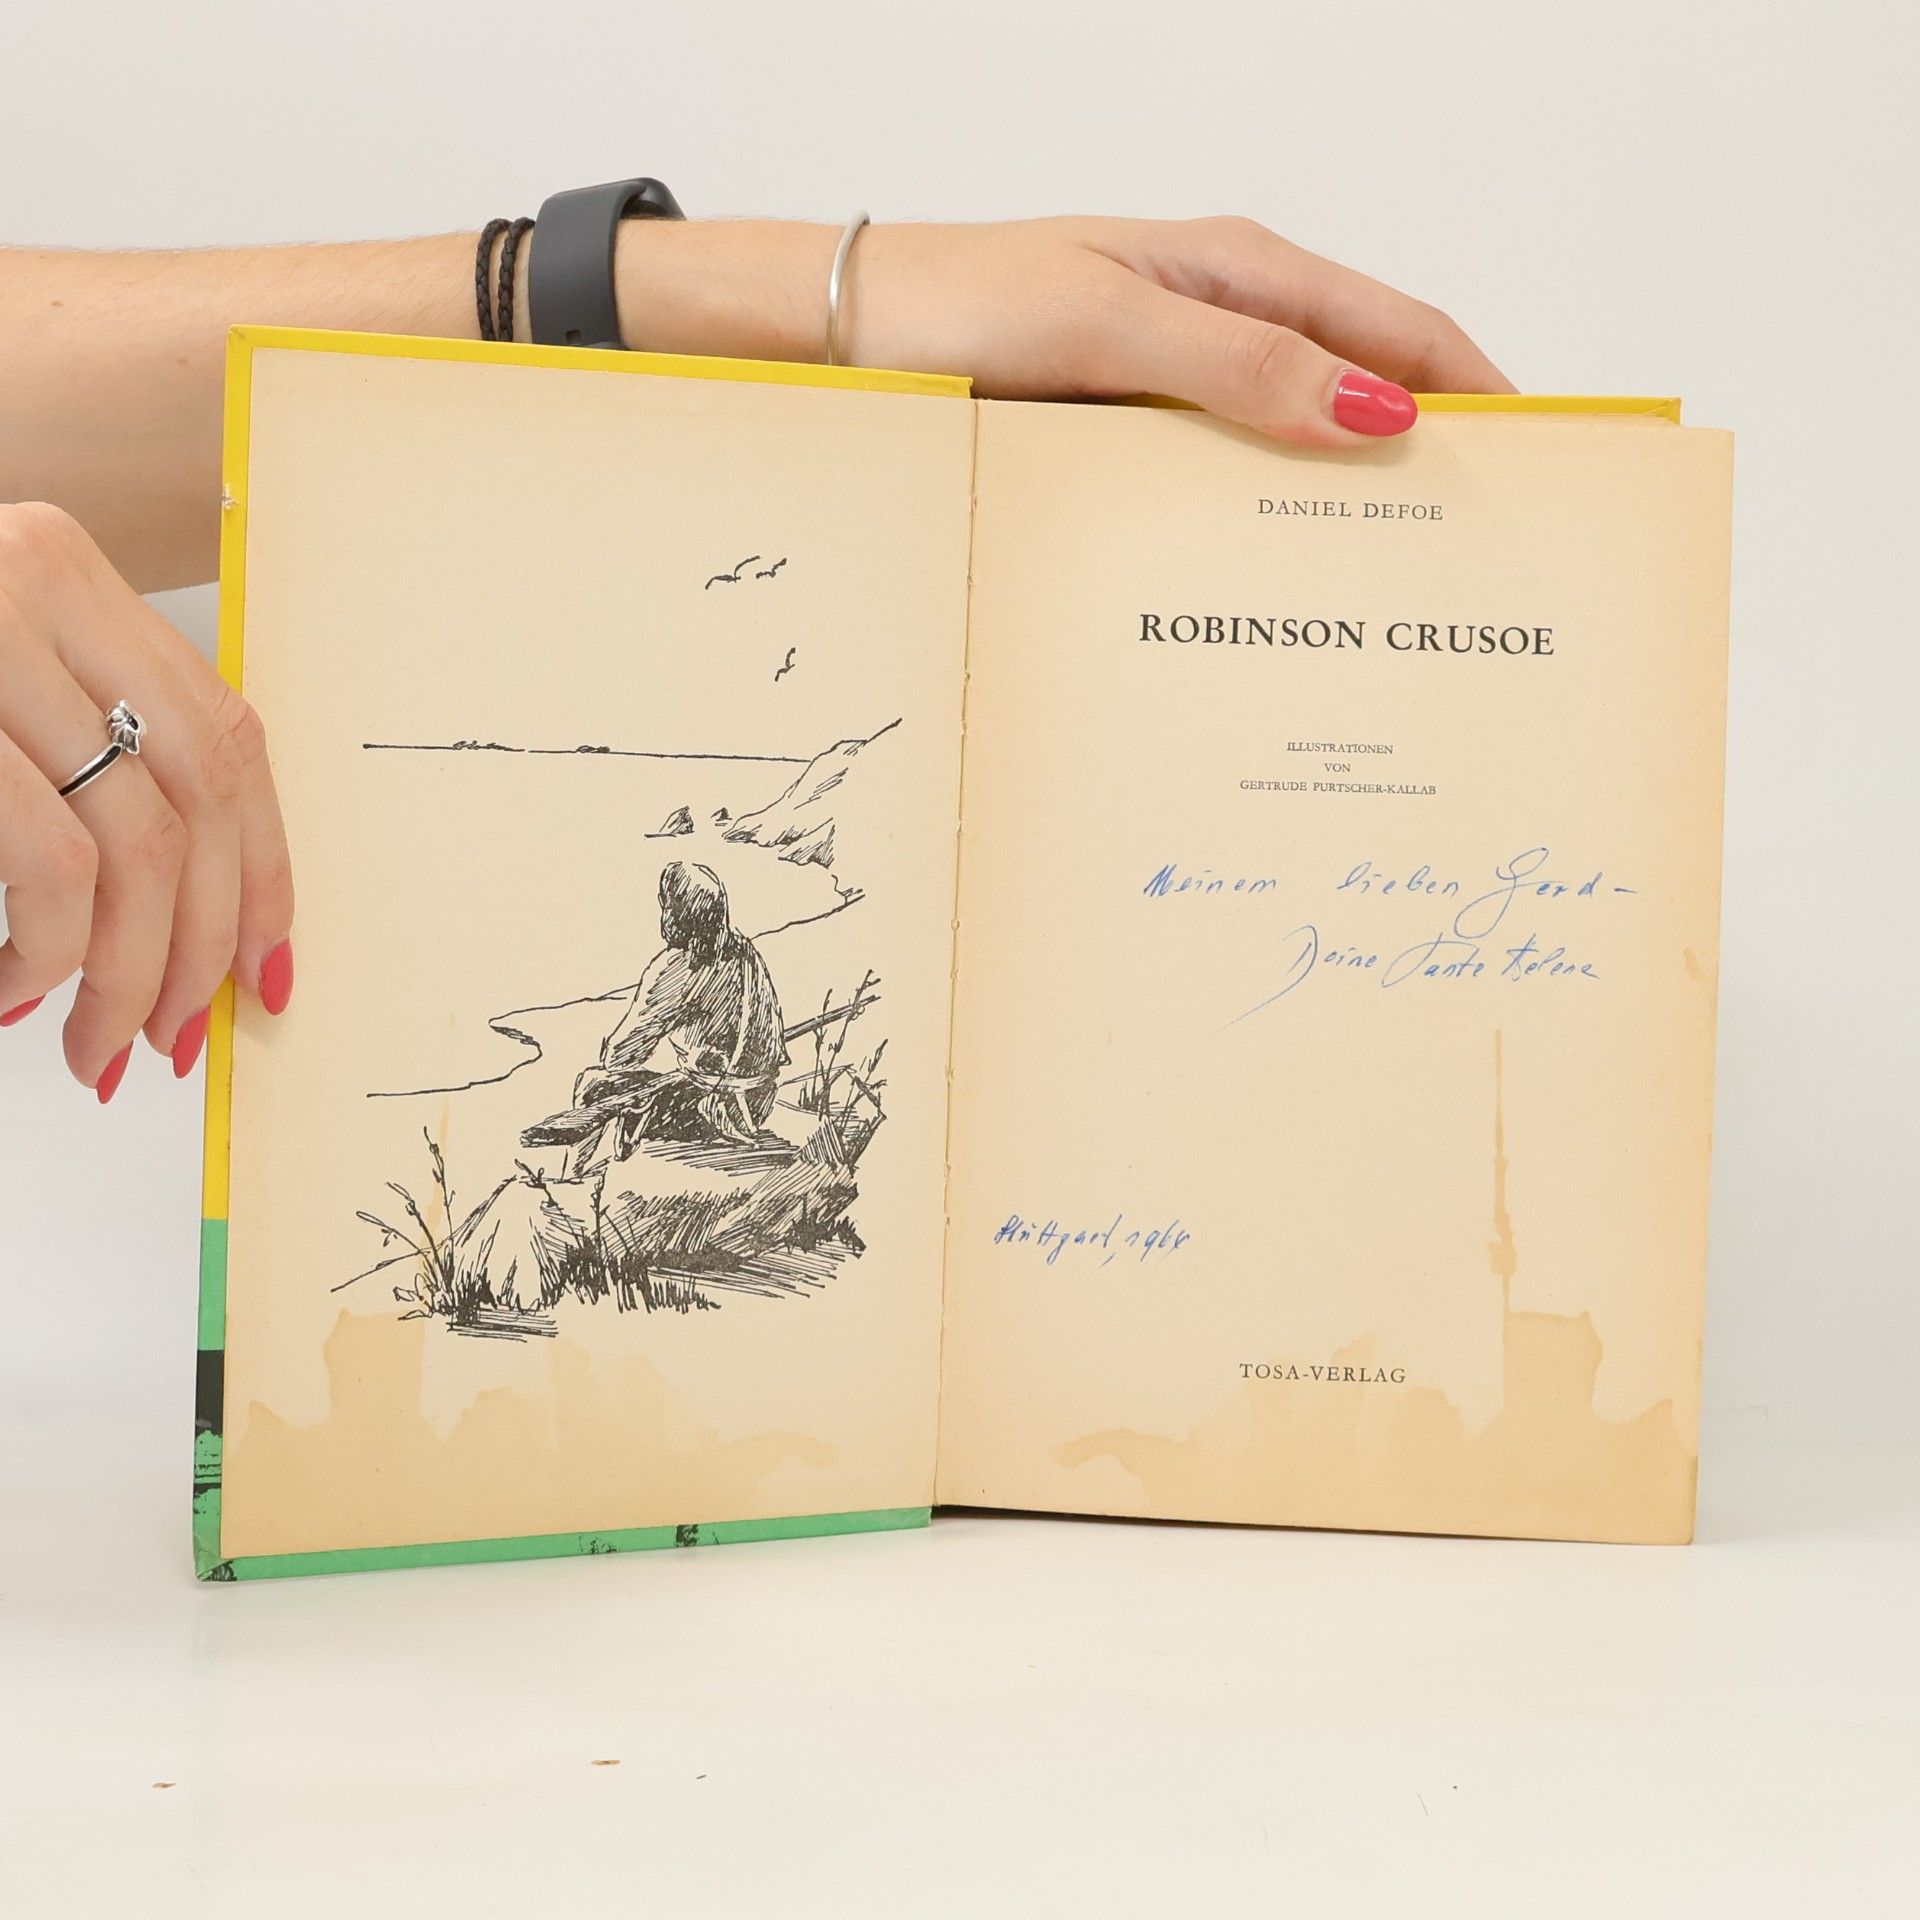 DANIEL DEFOE
ROBINSON CRUSOE
ILLUSTRATIONEN
VON
GERTRUDE PURTSCHER-KALLAB
Meinem lieben Gerd –
Deine Tante Helene
Stuttgart, 1964
TOSA-VERLAG